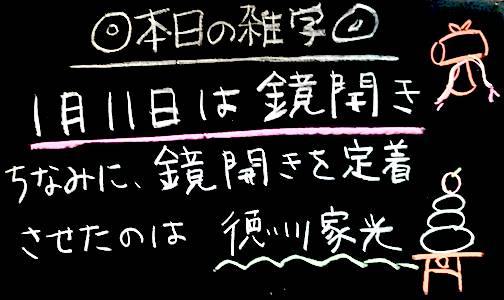 ◎本日の雑学◎
1月11日は鏡開き
ちなみに、鏡開きを定着
させたのは 徳川家光